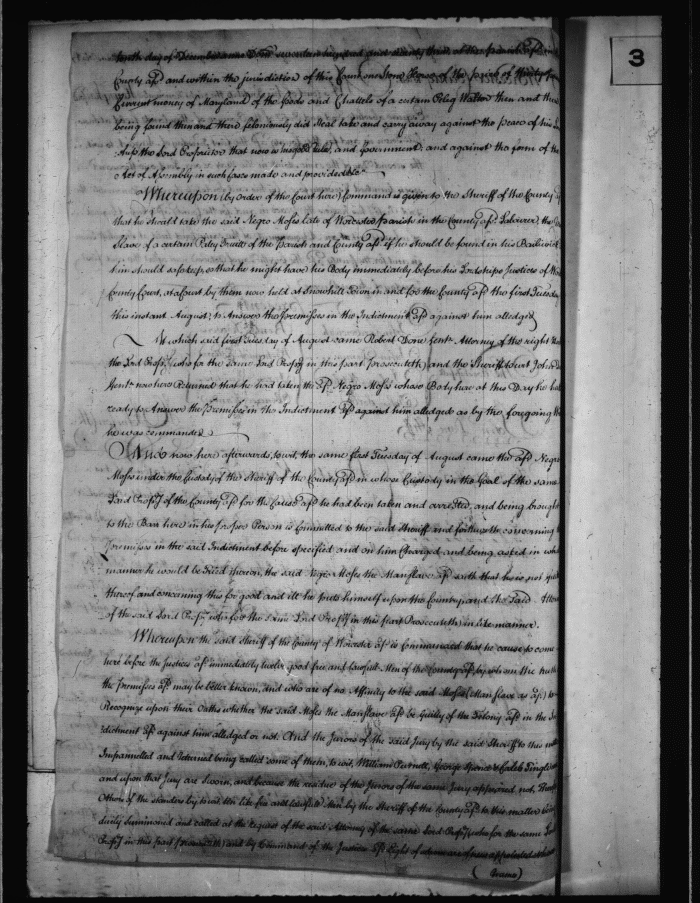 3
tenth day of December One Thous. seventeen hundred and seventy three, at the Parish afd. in the
County afd. and within the jurisdiction of this Court one Stone House of the price of thirty
Current money of Maryland of the Goods and Chattels of a certain Peleg Walter then and there
being found then and there feloniously did steal take and carry away against the peace of his
the Lord Proprietor that now is his good Rule, and Government, and against the form of the
Act of Assembly in such Case made and provided &c.
Whereupon (by Order of the Court here) Command is given to the Sheriff of the County
that he should take the said Negro Moses late of Worcester Parish in the County afd. Labourer, the
Slave of a certain Riley Truitt of the Parish and County afd. if he should be found in his Bailiwick
him should safe keep, so that he might have his Body immediately before his Lordships Justices of
County Court, at a Court by them now held at Snowhill Town in and for the County afd. the first Tuesday
this instant August, to Answer the Premisses in the Indictment afd. against him alledged
At which said first Tuesday of August came Robert Done Gent. Attorney of the right
the Lord Propry. (who for the same Lord Propry in this part prosecuteth) and the Sheriff to wit John
Gent. now here Returned that he had taken the afd. Negro Moses whose Body here at this Day he had
ready to Answer the Premisses in the Indictment afd. against him alledged as by the foregoing
he was commanded
And now here afterwards, to wit, the same first Tuesday of August came the afd. Negro
Moses under the Custody of the Sheriff of the County afd. in whose Custody in the Goal of the same
Lord Propry of the County afd. for the Cause afd. he had been taken and arrested, and being brought
to the Barr here in his proper Person is Committed to the said Sheriff and forthwith concerning
Premisses in the said Indictment before specified and on him Charged, and being asked in what
manner he would be Tried thereon, the said Negro Moses the Manslave afd. saith that he is not guilty
thereof and concerning this for good and ill he puts himself upon the Country, and the said
of the said Lord Propry. who for the same Lord Propry in this part Prosecuteth in like manner.
Whereupon the said Sheriff of the County of Worcester afd. is Commanded that he cause to come
here before the Justices afd. immediately twelve good free and lawfull Men of the County afd. by whom the truth
the Premisses afd. may be better known, and who are of no Affinity to the said Moses (Man slave as afd.) to
Recognize upon their Oaths whether the said Moses the Manslave afd. be Guilty of the Felony afd. in the In
dictment afd. against him alledged or not. And the Jurors of the said Jury by the said Sheriff to this
Impannelled and Returned being called some of them, to wit, William Purnell, George Spence & Caleb
and upon that Jury are Sworn, and because the residue of the Jurors of the same Jury appeared not,
Others of the standers by to wit ten like free and lawfull Men by the Sheriff of the County afd. to this matter
duely summoned and called at the request of the said Attorney of the same Lord Propry (who for the same Lord
Propry in this part prosecuteth) and by Command of the Justices afd. Eight of whom
(Name)